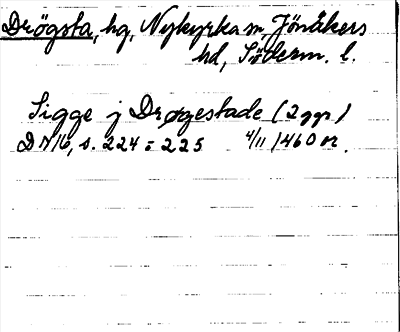 Drögsta, hg, Nykyrka sn, Jönåkers
hd, Söderm. l.
Sigge j Drøgestade (2 ggr)
DN 16, s. 224-225 4/11 1460 or.